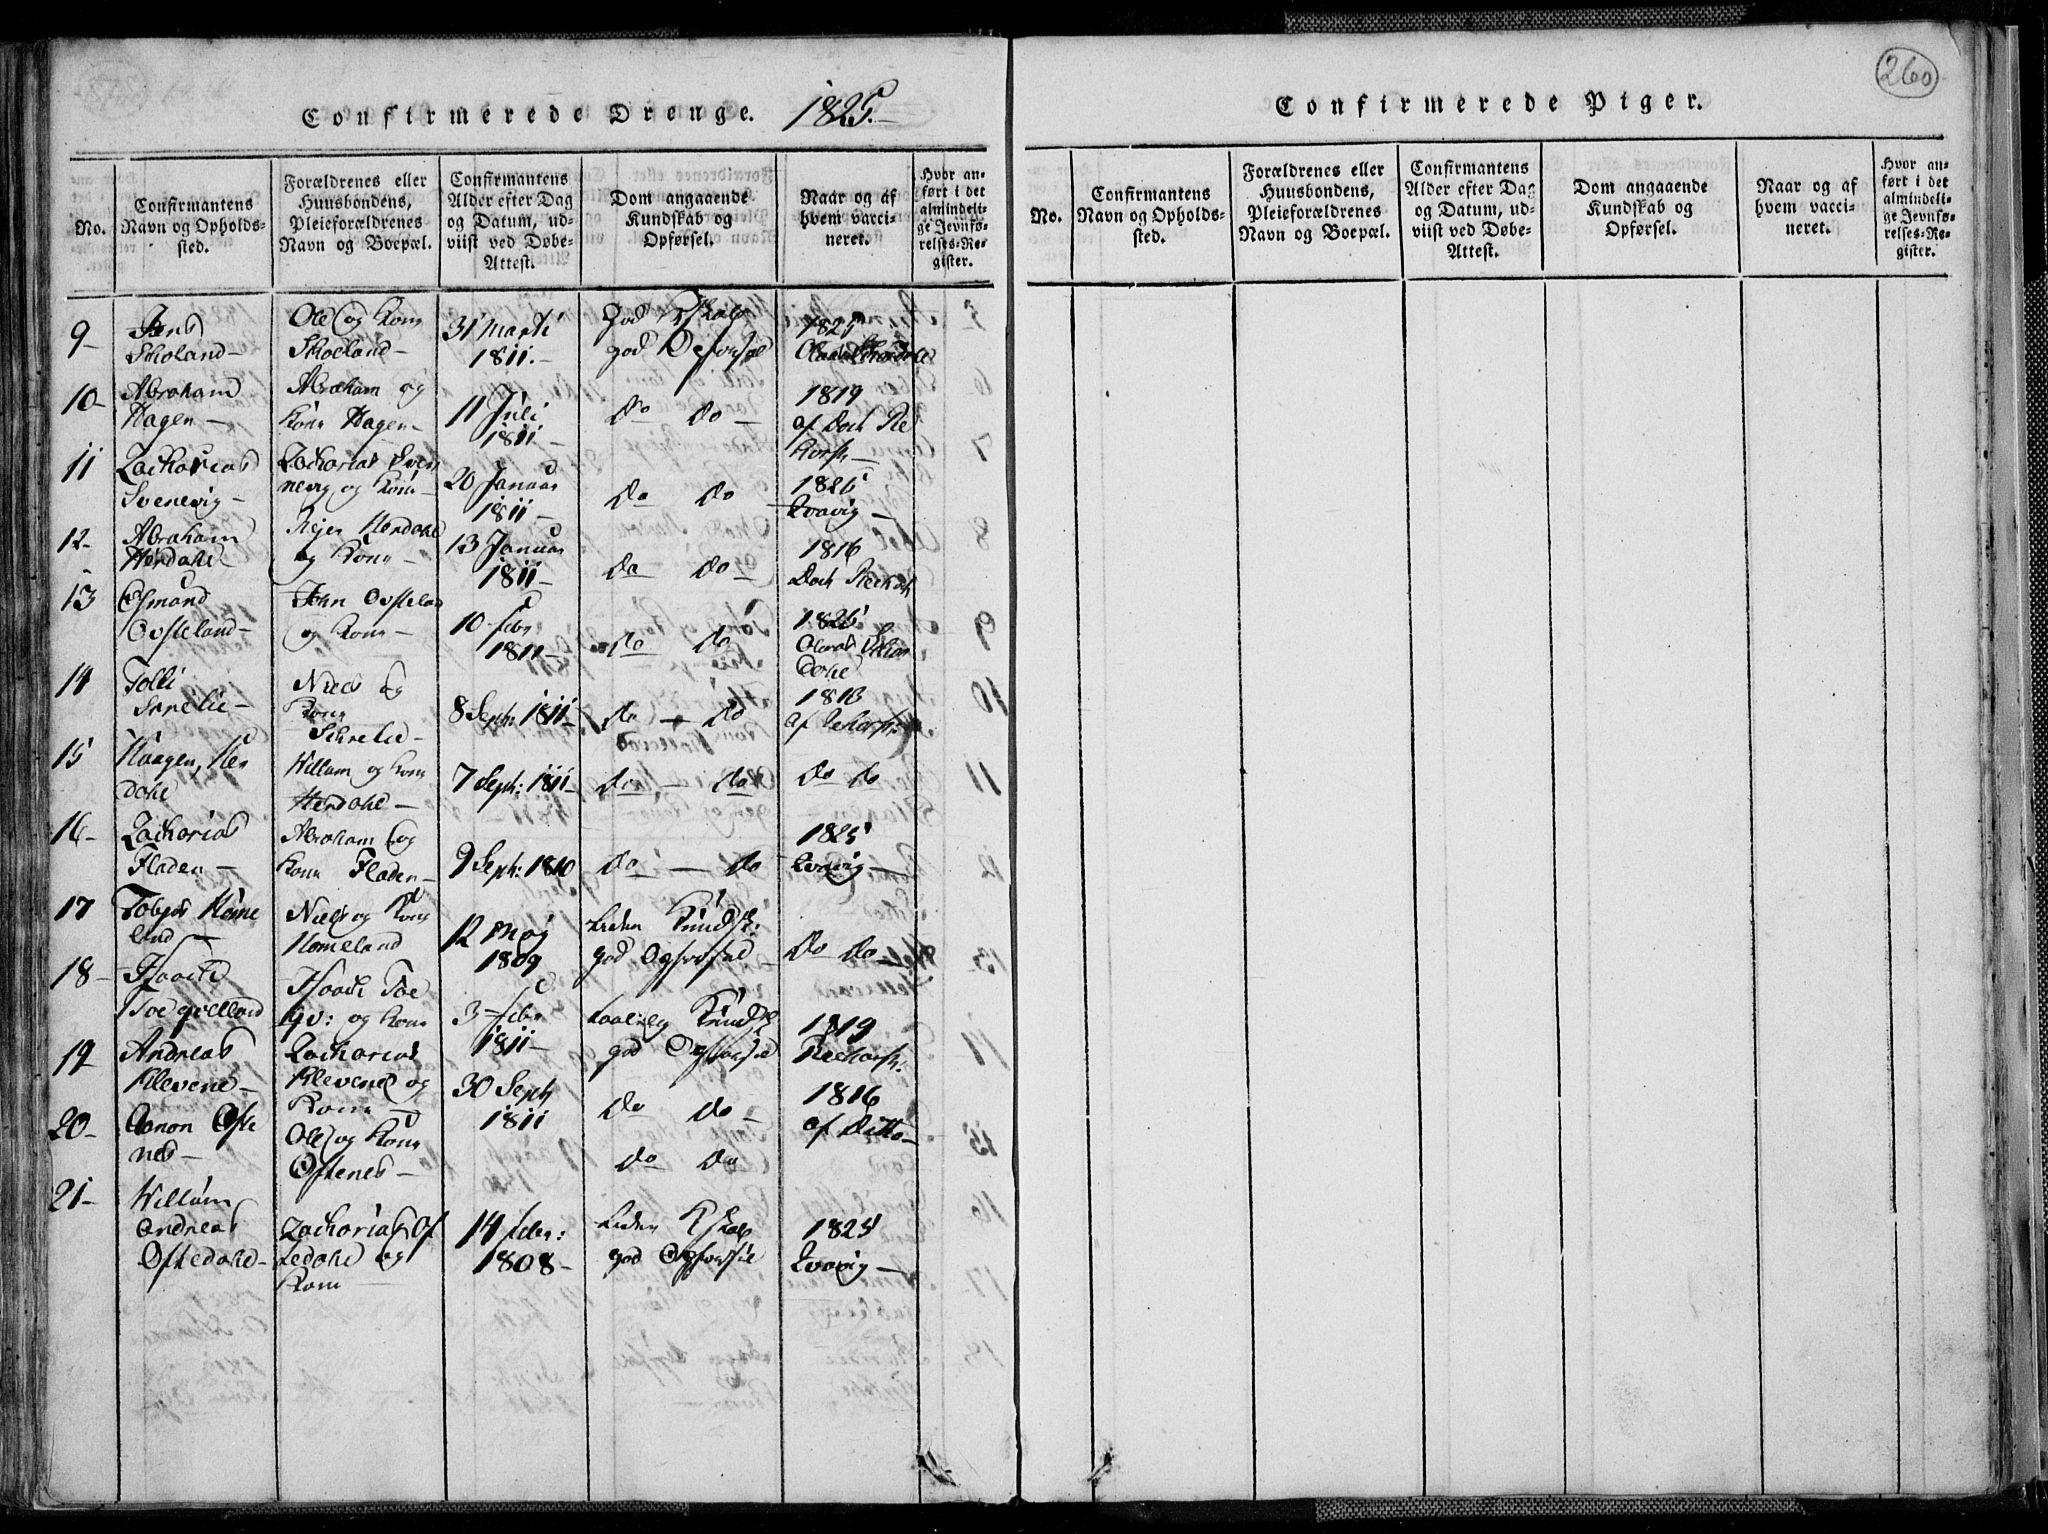 260
Confirmerede Drenge. 1825.
No.
Confirmantens
Navn og Opholds-
sted.
Forældrenes eller
Huusbondens,
Pleieforældrenes
Navn og Boepæl.
Confirmantens
Alder efter Dag
og Datum, ud-
viist ved Døbe-
Attest.
Dom angaaende
Kundskab og
Opførsel.
Naar og af
hvem vacci-
neret.
Hvor an-
ført i det
almindeli-
ge Jevnfø-
relses-Re-
gister.
9-
Jens
Skoland-
Ole og Kone
Skoeland-
31 Marti
1811.-
god Kskab
god Opførsel
1825
10-
Abraham
Hagen-
Abraham og
Kone Hagen-
11 Juli
1811-
do do-
1819
af Doct Re
korf-
11
Zacharias
Svenevig-
Zacharias Sven
nevig og Kone-
20 Januar
1811-
do do-
1825
Qvavig-
12-
Abraham
Herdahl-
Rejer Herdahl
og Kone-
13 Januar
1811-
do do-
1816
Doct Reekorf
13
Osmund
Ovsteland-
John Ovsteland
og Kone-
10 febr
1811-
do do
1825
14
Tolli
Niels og
Kone
8 Septr: 1811-
do - do
1813
af Rekorf:
15
Haagen Her
dahl
Willum og Kone
Herdahl-
7 Septr: 1811-
do - do
do do
16-
Zacharias
Fladen-
Abraham og
Kone Fladen-
9 Septr: 1810
do - do
1825
Qvavig-
17
Tobias Home
land-
Niels og Kone
Homeland
12 Maj
1809
Liden Kundsk:
god Opførsel
do do-
18-
3 febr
1811-
Kundsk
god Opførsel
1819
Reekorf:
19-
Andreas
Klevene-
Zacharias
Klevene og
Kone-
30 Septr
1811
do do-
1816
af Ditto-
20-
Oftenes-
Ole og Kone
Oftenes-
do do
21-
Willum
Andreas
Oftedahl-
Zacharias Of
tedahl og
Kone-
14 febr:
1808-
Liden Kskab
god Opførsel
1825
Qvavig-
Confirmerede Piger.
No.
Confirmantens
Navn og Opholds-
sted.
Forældrenes eller
Huusbondens,
Pleieforældrenes
Navn og Boepæl.
Confirmantens
Alder efter Dag
og Datum, ud-
viist ved Døbe-
Attest.
Dom angaaende
Kundskab og
Opførsel.
Naar og af
hvem vacci-
neret.
Hvor an-
ført i det
almindeli-
ge Jevnfø-
relses-Re-
gister.